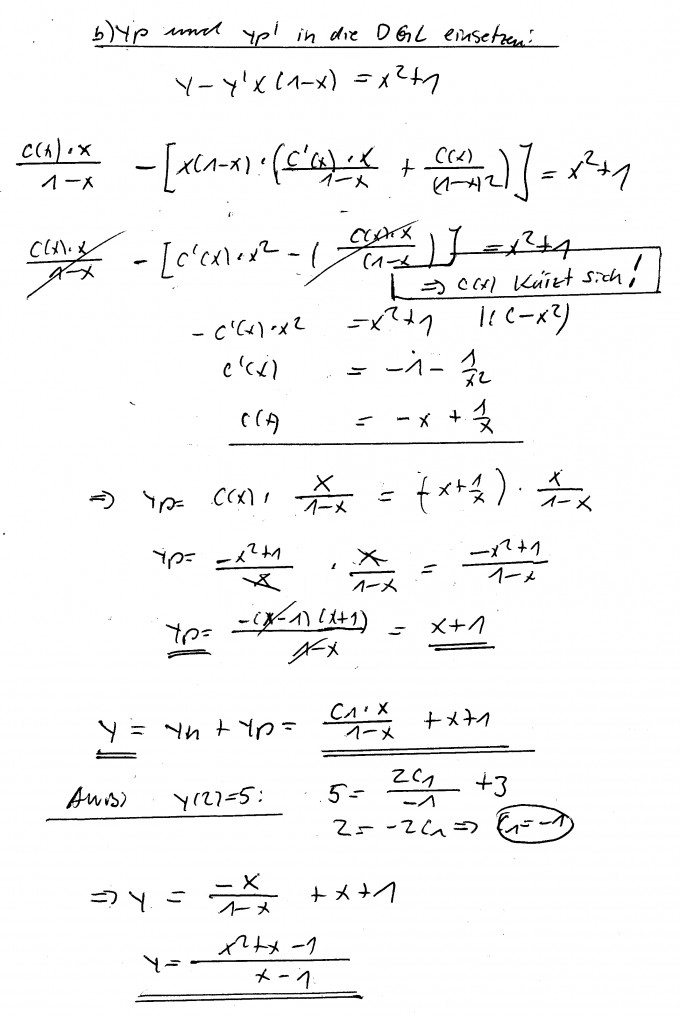 b) yp und yp' in die DGL einsetzen:
y - y' x (1-x) = x²+1
C(x)·x/1-x - [x(1-x)·(C'(x)·x/1-x + C(x)/(1-x)²)] = x²+1
C(x)·x/1-x - [C'(x)·x² - (C(x)·x/(1-x)] = x²+1
⇒ C(x) kürzt sich!
- C'(x)·x² = x²+1 |:(-x²)
C'(x) = -1 - 1/x²
C(x) = -x + 1/x
⇒ yp = C(x)· x/1-x = (-x+1/x) · x/1-x
yp = -x²+1/x · x/1-x = -x²+1/1-x
yp = -(x-1)(x+1)/1-x = x+1
y = yh + yp = C1·x/1-x + x+1
AWB) y(2)=5: 5 = 2C1/-1 + 3
2 = -2C1 ⇒ C1=-1
⇒ y = -x/1-x + x+1
y = x²+x-1/x-1